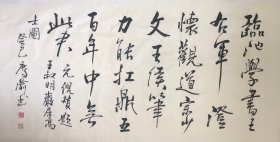 臨池學書王
右軍澄
懷觀道宗少
文王侯筆
力能扛鼎五
百年中無
此君
元倪瓚題
王叔明巖居高
士圖
癸巳